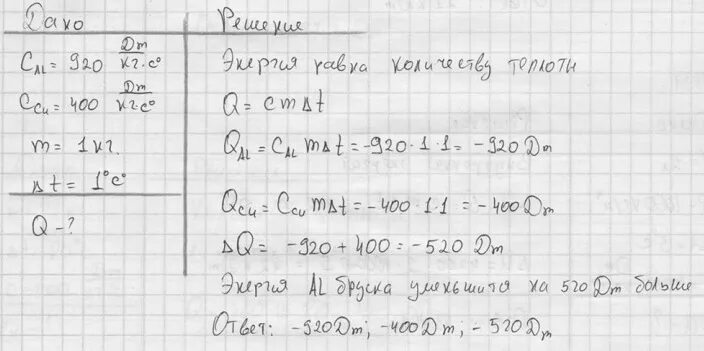 Дано
C_AL = 920 Дж/кг·c°
C_Cu = 400 Дж/кг·c°
m = 1 кг.
Δt = 1°c°
Q - ?
Решение
Энергия равна количеству теплоты
Q = cmΔt
Q_AL = C_AL mΔt = -920·1·1 = -920 Дж
Q_Cu = C_Cu mΔt = -400·1·1 = -400 Дж
ΔQ = -920 + 400 = -520 Дж
Энергия AL бруска уменьшится на 520 Дж больше
Ответ: -920 Дж; -400 Дж; -520 Дж